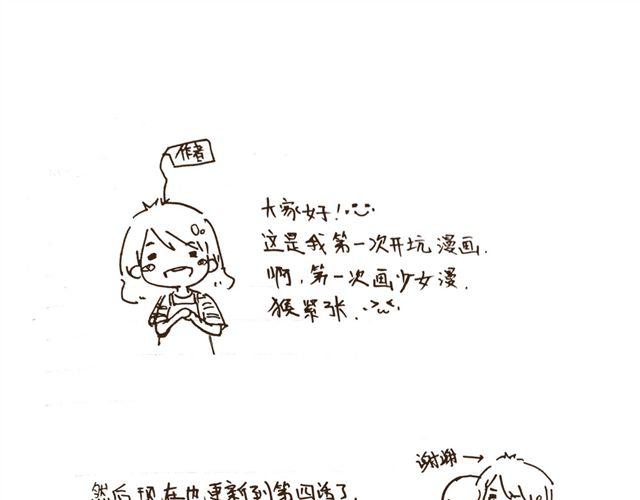 作者
大家好!
这是我第一次开坑漫画.
啊,第一次画少女漫.
猴紧张.
谢谢→
然后现在也更新到第四话了.